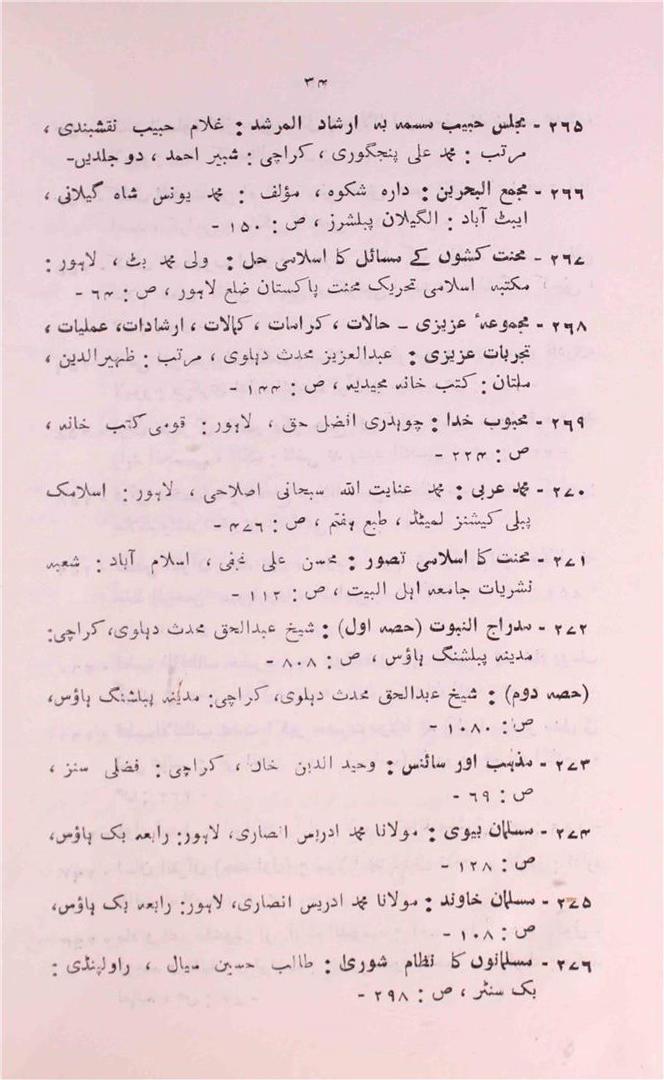 ۳۴
۲۶۵ - مجلس حبیب مسمہ بہ ارشاد المرشد : غلام حبیب نقشبندی ،
مرتب : محمد علی پنجگوری ، کراچی : شبیر احمد ، دو جلدیں-
۲۶۶ - مجمع البحرین : دارہ شکوہ ، مؤلف : محمد یونس شاہ گیلانی ،
ایبٹ آباد : الگیلان پبلشرز ، ص : ۱۵۰ -
۲۶۷ - محنت کشوں کے مسائل کا اسلامی حل : ولی محمد بٹ ، لاہور :
مکتبہ اسلامی تحریک محنت پاکستان ضلع لاہور ، ص : ۶۴ -
۲۶۸ - مجموعۂ عزیزی - حالات ، کرامات ، کمالات ، ارشادات، عملیات ،
تجربات عزیزی : عبدالعزیز محدث دہلوی ، مرتب : ظہیرالدین ،
ملتان : کتب خانہ مجیدیہ ، ص : ۱۴۴ -
۲۶۹ - محبوب خدا : چوہدری افضل حق ، لاہور : قومی کتب خانہ ،
ص : ۲۲۴ -
۲۷۰ - محمد عربی : محمد عنایت اللہ سبحانی اصلاحی ، لاہور : اسلامک
پبلی کیشنز لمیٹڈ ، طبع ہفتم ، ص : ۴۷۶ -
۲۷۱ - محنت کا اسلامی تصور : محسن علی نجفی ، اسلام آباد : شعبہ
نشریات جامعہ اہل البیت ، ص : ۱۱۲ -
۲۷۲ - مدراج النبوت (حصہ اول) : شیخ عبدالحق محدث دہلوی، کراچی:
مدینہ پبلشنگ ہاؤس ، ص : ۸۰۸ -
(حصہ دوم) : شیخ عبدالحق محدث دہلوی، کراچی: مدینہ پبلشنگ ہاؤس،
ص : ۱۰۸۰ -
۲۷۳ - مذہب اور سائنس : وحید الدین خان ، کراچی : فضلی سنز ،
ص : ۶۹ -
۲۷۴ - مسلمان بیوی : مولانا محمد ادریس انصاری، لاہور: رابعہ بک ہاؤس،
ص : ۱۲۸ -
۲۷۵ - مسلمان خاوند : مولانا محمد ادریس انصاری، لاہور: رابعہ بک ہاؤس،
ص : ۱۰۸ -
۲۷۶ - مسلمانوں کا نظام شوریٰ : طالب حسین سیال ، راولپنڈی :
بک سنٹر ، ص : ۲۹۸ -